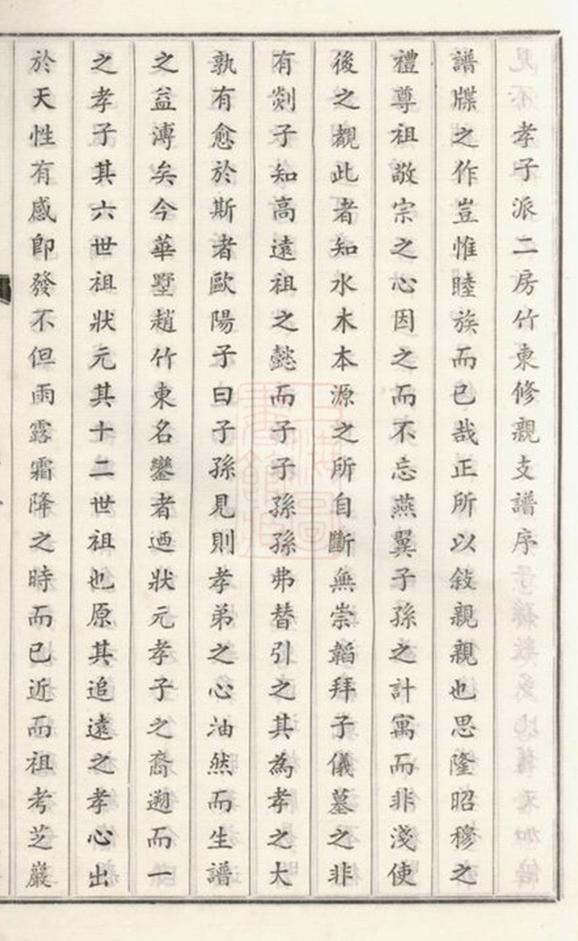 孝子派二房竹東修親支譜序
譜牒之作豈惟睦族而已哉正所以敍親親也思隆昭穆之
禮尊祖敬宗之心因之而不忘燕翼子孫之計寓而非淺使
後之覩此者知水木本源之所自斷無崇韜拜子儀墓之非
有剡子知高遠祖之懿而子子孫孫弗替引之其為孝之大
孰有愈於斯者歐陽子曰子孫見則孝弟之心油然而生譜
之益溥矣今華墅趙竹東名鑾者迺狀元孝子之裔遡而一
之孝子其六世祖狀元其十二世祖也原其追遠之孝心出
於天性有感卽發不但雨露霜降之時而已近而祖考芝巖